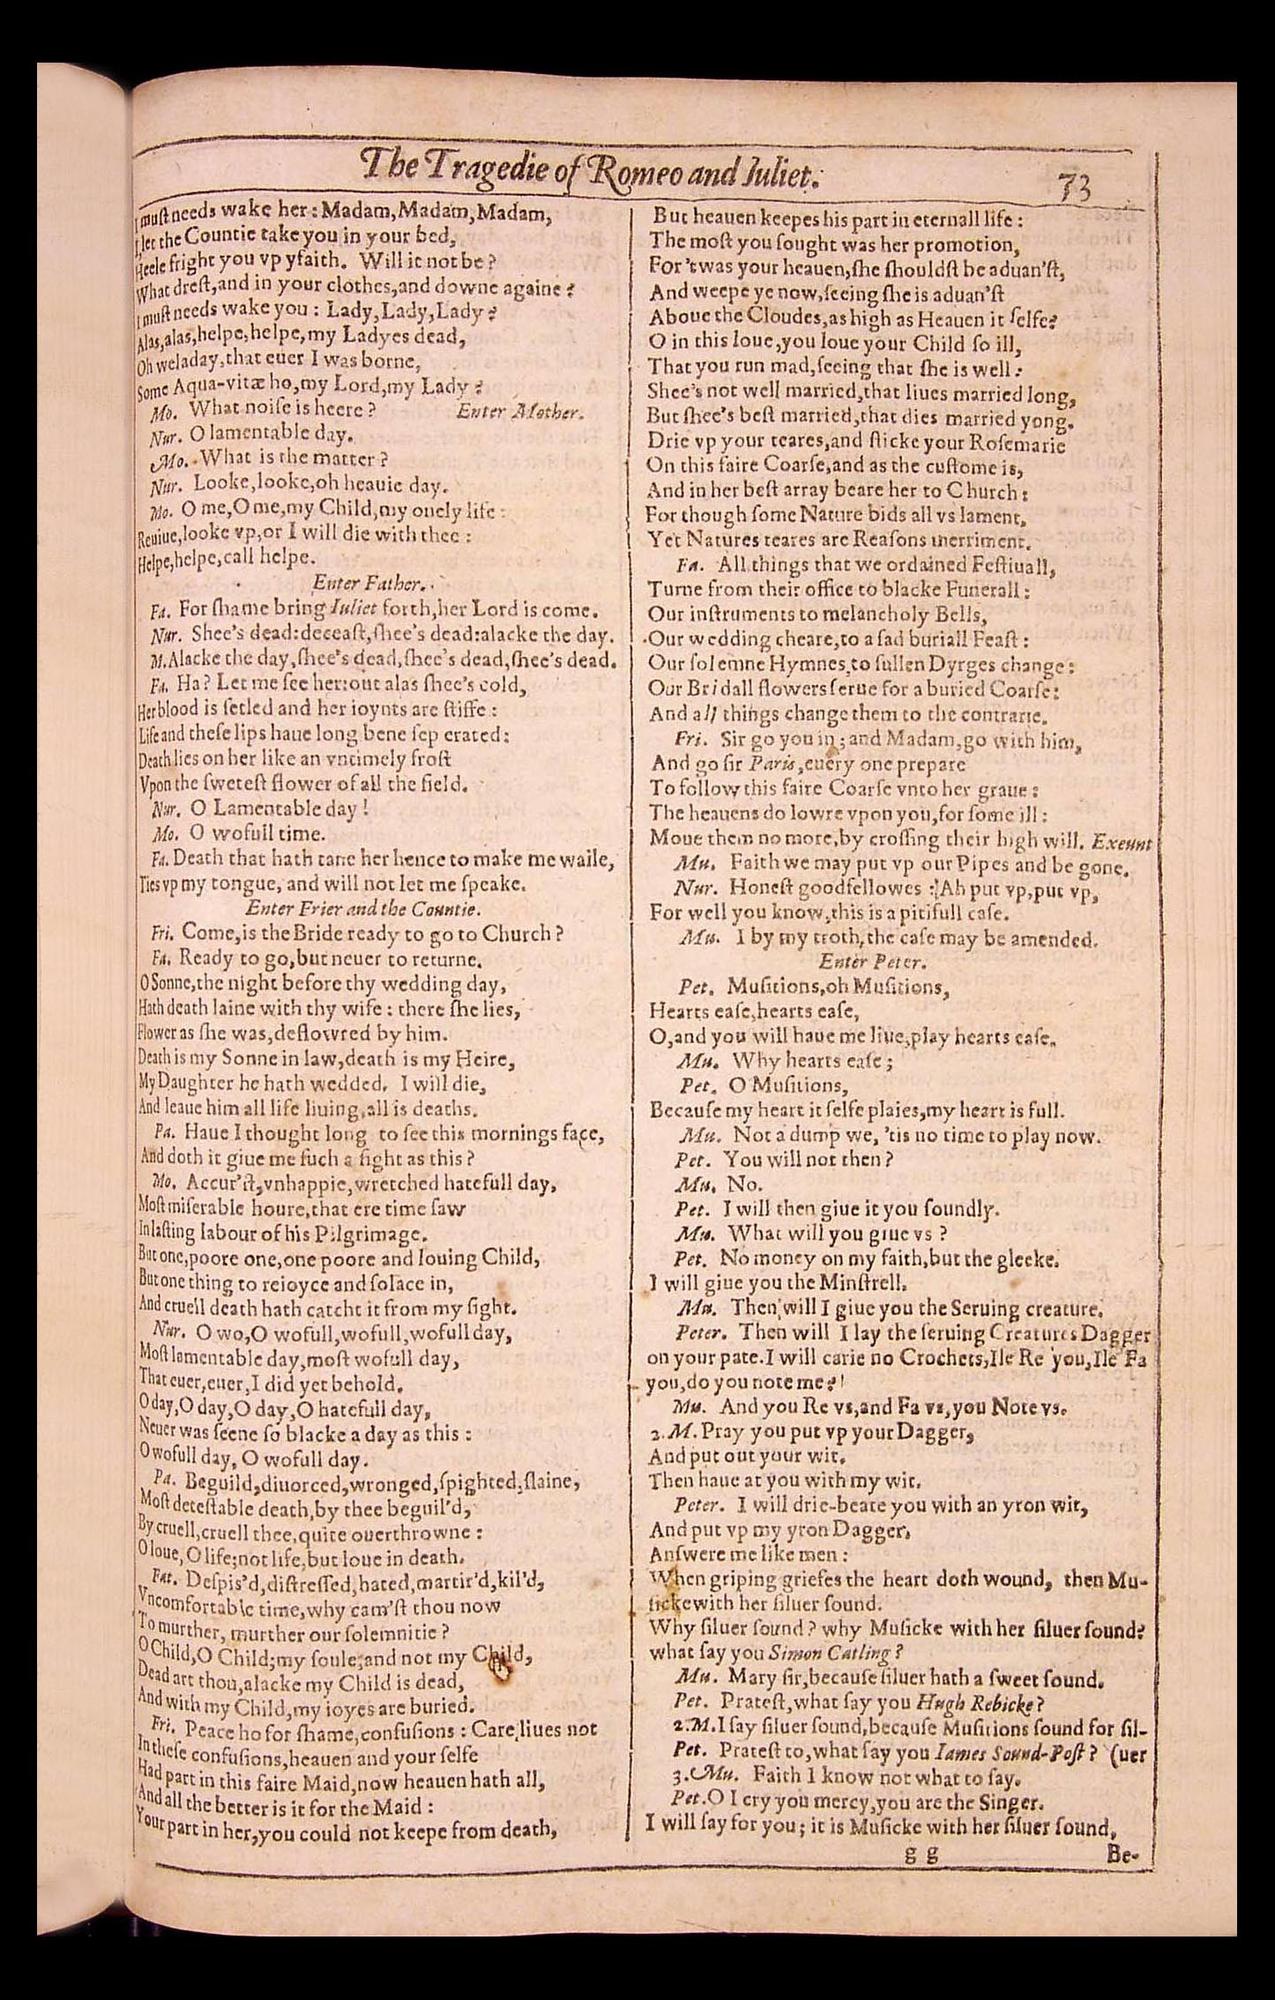 The Tragedie of Romeo and Iuliet.
73
I muſt needs wake her: Madam,Madam,Madam,
I,let the Countie take you in your bed,
Heele fright you vp yfaith. Will it not be?
What dreſt,and in your clothes,and downe againe?
I muſt needs wake you: Lady,Lady,Lady?
Alas,alas,helpe,helpe,my Ladyes dead,
Oh weladay,that euer I was borne,
Some Aqua-vitæ ho,my Lord,my Lady?
Mo. What noiſe is heere? Enter Mother.
Nur. O lamentable day.
Mo. What is the matter?
Nur. Looke,looke,oh heauie day.
Mo. O me,O me,my Child,my onely life:
Reuiue,looke vp,or I will die with thee:
Helpe,helpe,call helpe.
Enter Father.
Fa. For ſhame bring Iuliet forth,her Lord is come.
Nur. Shee's dead:deceaſt,ſhee's dead:alacke the day.
M.Alacke the day,ſhee's dead,ſhee's dead,ſhee's dead.
Fa. Ha? Let me ſee her:out alas ſhee's cold,
Her blood is ſetled and her ioynts are ſtiffe:
Life and theſe lips haue long bene ſeperated:
Death lies on her like an vntimely froſt
Vpon the ſweteſt flower of all the field.
Nur. O Lamentable day!
Mo. O wofull time.
Fa. Death that hath tane her hence to make me waile,
Ties vp my tongue, and will not let me ſpeake.
Enter Frier and the Countie.
Fri. Come,is the Bride ready to go to Church?
Fa. Ready to go,but neuer to returne.
O Sonne,the night before thy wedding day,
Hath death laine with thy wife: there ſhe lies,
Flower as ſhe was,deflowred by him.
Death is my Sonne in law,death is my Heire,
My Daughter he hath wedded. I will die,
And leaue him all life liuing,all is deaths.
Pa. Haue I thought long to ſee this mornings face,
And doth it giue me ſuch a ſight as this?
Mo. Accur'ſt,vnhappie,wretched hatefull day,
Moſt miſerable houre,that ere time ſaw
In laſting labour of his Pilgrimage.
But one,poore one,one poore and louing Child,
But one thing to reioyce and ſolace in,
And cruell death hath catcht it from my ſight.
Nur. O wo,O wofull,wofull,wofull day,
Moſt lamentable day,moſt wofull day,
That euer,euer,I did yet behold.
O day,O day,O day,O hatefull day,
Neuer was ſeene ſo blacke a day as this:
O wofull day, O wofull day.
Pa. Beguild,diuorced,wronged,ſpighted,ſlaine,
Moſt deteſtable death,by thee beguil'd,
By cruell,cruell thee,quite ouerthrowne:
O loue,O life;not life,but loue in death.
Fat. Deſpis'd,diſtreſſed,hated,martir'd,kil'd,
Vncomfortable time,why cam'ſt thou now
To murther, murther our ſolemnitie?
O Child,O Child;my ſoule,and not my Child,
Dead art thou,alacke my Child is dead,
And with my Child,my ioyes are buried.
Fri. Peace ho for ſhame,confuſions: Care,liues not
In theſe confuſions,heauen and your ſelfe
Had part in this faire Maid,now heauen hath all,
And all the better is it for the Maid:
Your part in her,you could not keepe from death,
But heauen keepes his part in eternall life:
The moſt you ſought was her promotion,
For 'twas your heauen,ſhe ſhouldſt be aduan'ſt,
And weepe ye now,ſeeing ſhe is aduan'ſt
Aboue the Cloudes,as high as Heauen it ſelfe?
O in this loue,you loue your Child ſo ill,
That you run mad,ſeeing that ſhe is well:
Shee's not well married,that liues married long,
But ſhee's beſt married,that dies married yong.
Drie vp your teares,and ſticke your Roſemarie
On this faire Coarſe,and as the cuſtome is,
And in her beſt array beare her to Church:
For though ſome Nature bids all vs lament,
Yet Natures teares are Reaſons merriment.
Fa. All things that we ordained Feſtiuall,
Turne from their office to blacke Funerall:
Our inſtruments to melancholy Bells,
Our wedding cheare,to a ſad buriall Feaſt:
Our ſolemne Hymnes,to ſullen Dyrges change:
Our Bridall flowers ſerue for a buried Coarſe:
And all things change them to the contrarie.
Fri. Sir go you in;and Madam,go with him,
And go ſir Paris,euery one prepare
To follow this faire Coarſe vnto her graue:
The heauens do lowre vpon you,for ſome ill:
Moue them no more,by croſſing their high will. Exeunt
Mu. Faith we may put vp our Pipes and be gone.
Nur. Honeſt goodfellowes: Ah put vp,put vp,
For well you know,this is a pitifull caſe.
Mu. I by my troth,the caſe may be amended.
Enter Peter.
Pet. Muſitions,oh Muſitions,
Hearts eaſe,hearts eaſe,
O,and you will haue me liue,play hearts eaſe.
Mu. Why hearts eaſe;
Pet. O Muſitions,
Becauſe my heart it ſelfe plaies,my heart is full.
Mu. Not a dump we, 'tis no time to play now.
Pet. You will not then?
Mu. No.
Pet. I will then giue it you ſoundly.
Mu. What will you giue vs?
Pet. No money on my faith,but the gleeke.
I will giue you the Minſtrell.
Mu. Then will I giue you the Seruing creature.
Peter. Then will I lay the ſeruing Creatures Dagger
on your pate.I will carie no Crochets,Ile Re you,Ile Fa
you,do you note me?
Mu. And you Re vs,and Fa vs,you Note vs.
2.M.Pray you put vp your Dagger,
And put out your wit.
Then haue at you with my wit.
Peter. I will drie-beate you with an yron wit,
And put vp my yron Dagger.
Anſwere me like men:
When griping griefes the heart doth wound, then Mu-
ſicke with her ſiluer ſound.
Why ſiluer ſound? why Muſicke with her ſiluer ſound?
what ſay you Simon Catling?
Mu. Mary ſir,becauſe ſiluer hath a ſweet ſound.
Pet. Prateſt,what ſay you Hugh Rebicke?
2.M.I ſay ſiluer ſound,becauſe Muſitions ſound for ſil-
Pet. Prateſt to,what ſay you Iames Sound-Poſt? (uer
3.Mu. Faith I know not what to ſay.
Pet.O I cry you mercy,you are the Singer.
I will ſay for you; it is Muſicke with her ſiluer ſound,
g g
Be-